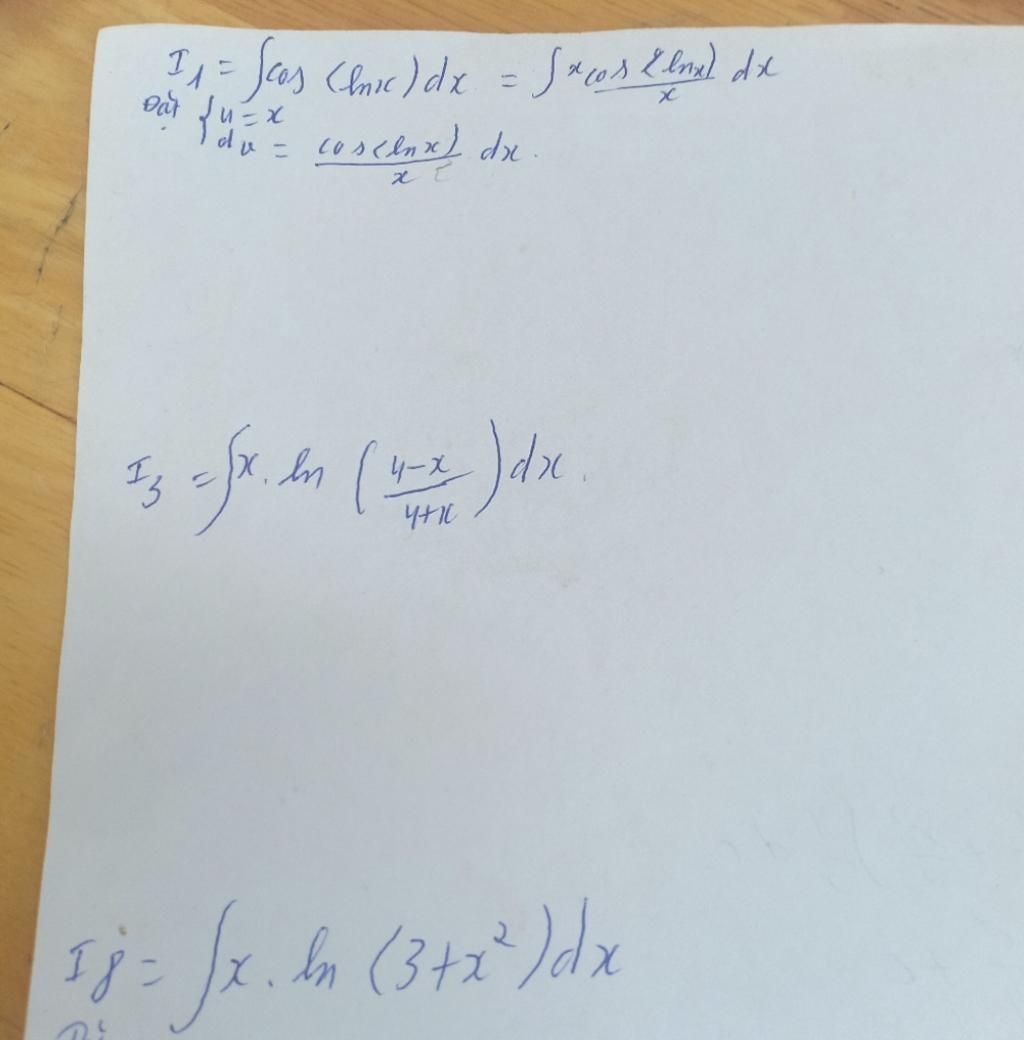 I₁ = ∫cos (lnx) dx = ∫ x cos (lnx) / x dx
Đặt { u = x
dv = cos(lnx) / x dx.
I₃ = ∫x. ln ( 4-x / 4+x ) dx.
I₈ = ∫x. ln (3+x²) dx